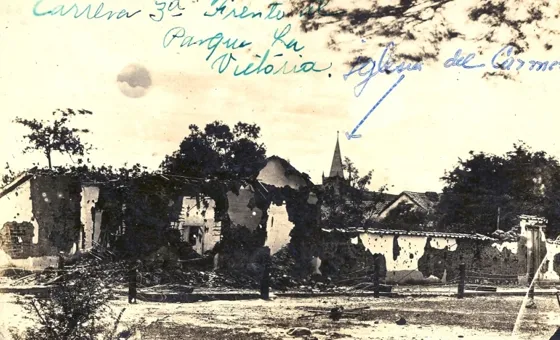 Carrera 3ª Frente al
Parque La
Victoria.
iglesia del Carmo